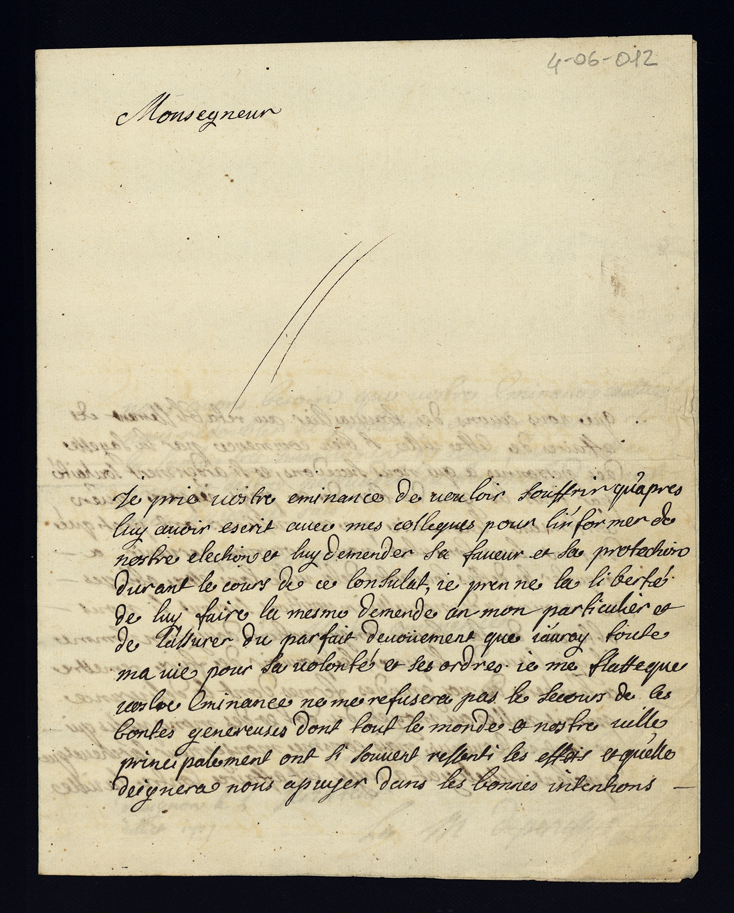 4-06-012
Monsegneur
Ie prie vostre eminance de vouloir souffrir qu'apres
luy avoir escrit avec mes collegues pour l'informer de
nostre election et luy demender sa faveur et sa protection
durant le cours de ce Consulat, ie prenne la liberté
de luy faire la mesme demende an mon particulier et
de l'assurer du parfait devouement que i'auray toute
ma vie pour sa volonté et ses ordres. ie me flatte que
vostre Eminance ne me refusera pas le secours de ces
bontes genereuses dont tout le monde et nostre ville
principalement ont si souvent ressenti les effets et qu'elle
deignera nous apuyer dans les bonnes intentions —